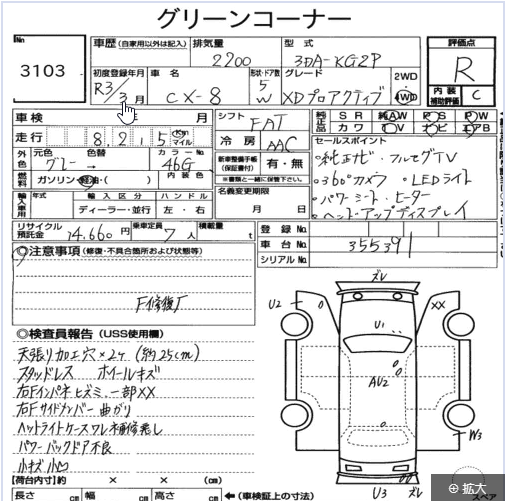 グリーンコーナー
No.
3103
車歴 (自家用以外は記入)
排気量
2200
型式
3DA-KG2P
評価点
R
初度登録年月
R3/3月
車名
CX-8
形状・ドア数
5
W
グレード
XDプロアクティブ
2WD
4WD
内装
補助評価
C
車検
年
月
シフト
FAT
純正品
SR
AW
PS
PW
カワ
TV
ナビ
エアB
走行
8 2, 5
Km
マイル
冷房
AAC
セールスポイント
・純正ナビ・フルセグTV
・360°カメラ ・LEDライト
・パワーシート・ヒーター
・ヘッドアップディスプレイ
外色
元色
グレー
色替
カラーNo.
46G
新車整備手帳
(保証書付)
有・無
※書類と一緒に保管下さい。
燃料
ガソリン・軽油・( )
内装色
名義変更期限
月 日
輸入車用
年式
輸入区分
ディーラー・並行
ハンドル
左・右
リサイクル
預託金
14.660円
乗車定員
7人
積載量
t
登録No.
車台No.
355391
シリアルNo.
◎注意事項 (修復・不具合箇所および状態等)
F修復歴
◎検査員報告 (USS使用欄)
天張り加工穴×2ヶ (約25cm)
スタッドレス ホイールキズ
右Fインパネヒズミ、一部XX
右Fサイドメンバー曲がり
ヘットライトケースワレ補修跡し
パワーバックドア不良
小キズ 小凹
ズレ
U2
XX
U1
AU2
W3
U3
ズレ
スペア
【荷台内寸】約 × × (cm)
長さ cm 幅 cm 高さ cm
←(車検証上の寸法)
拡大